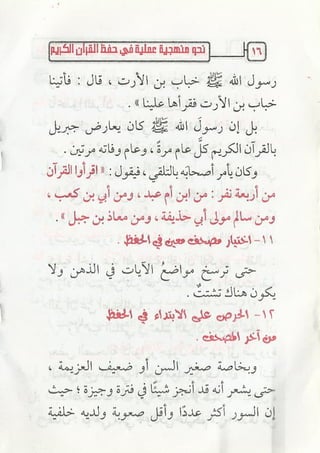 ١٦
نحو منهجية عملية في حفظ القرآن الكريم
رسول الله ﷺ خباب بن الأرت ، قال : فأتينا
خباب بن الأرت فقرأها علينا » .
بل إن رسولَ الله ﷺ كان يعارض جبريل
بالقرآن الكريم كلَّ عام مرةً ، وعام وفاته مرتين .
وكان يأمر أصحابَه بالتلقي ، فيقول : « اقرأوا القرآن
من أربعة نفر : من ابن أم عبد ، ومن أبي بن كعب ،
ومن سالم مولى أبي حذيفة ، ومن معاذ بن جبل » .
١١- اختيار مصحف معين في الحفظ .
حتى ترسخ مواضعُ الآيات في الذهن ولا
يكون هناك تشتتٌ .
١٢- الحرص على الابتداء في الحفظ
من آخر المصحف .
وبخاصة صغير السن أو ضعيف العزيمة ،
حتى يشعر أنه قد أنجز شيئًا في فترة وجيزة ؛ حيث
إن السور أكثر عددًا وأقل صعوبة ولديه خلفية